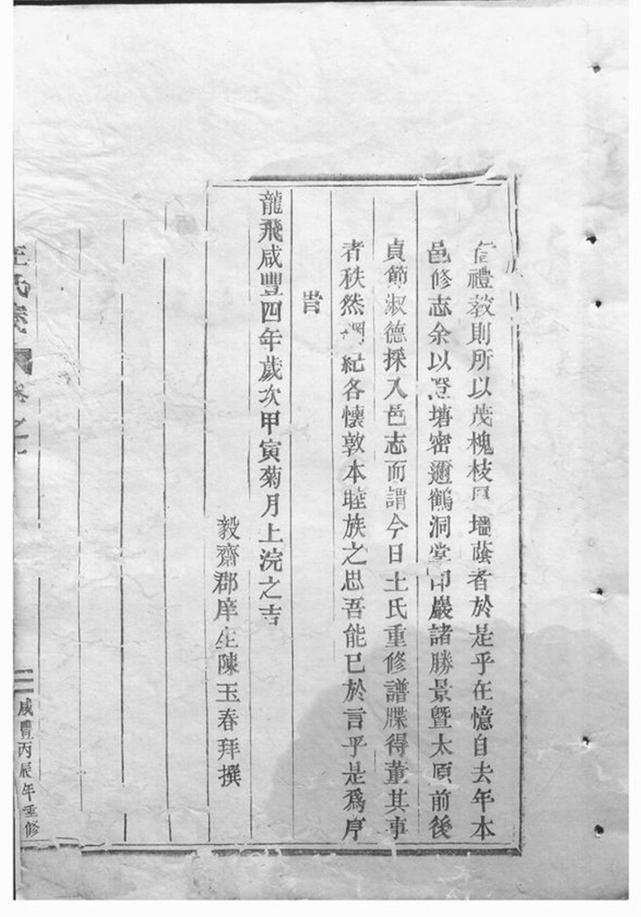 信禮教則所以茂槐枝厚墻蔭者於是乎在憶自去年本
邑修志余以登塘密邇鶴洞堂印巖諸勝景暨太原前後
貞節淑德採入邑志而謂今日王氏重修譜牒得董其事
者秩然綱紀各懷敦本睦族之思吾能已於言乎是為序
旹
龍飛咸豐四年歲次甲寅菊月上浣之吉
毅齋郡庠生陳玉春拜撰
王氏 卷之
咸豐丙辰年重修